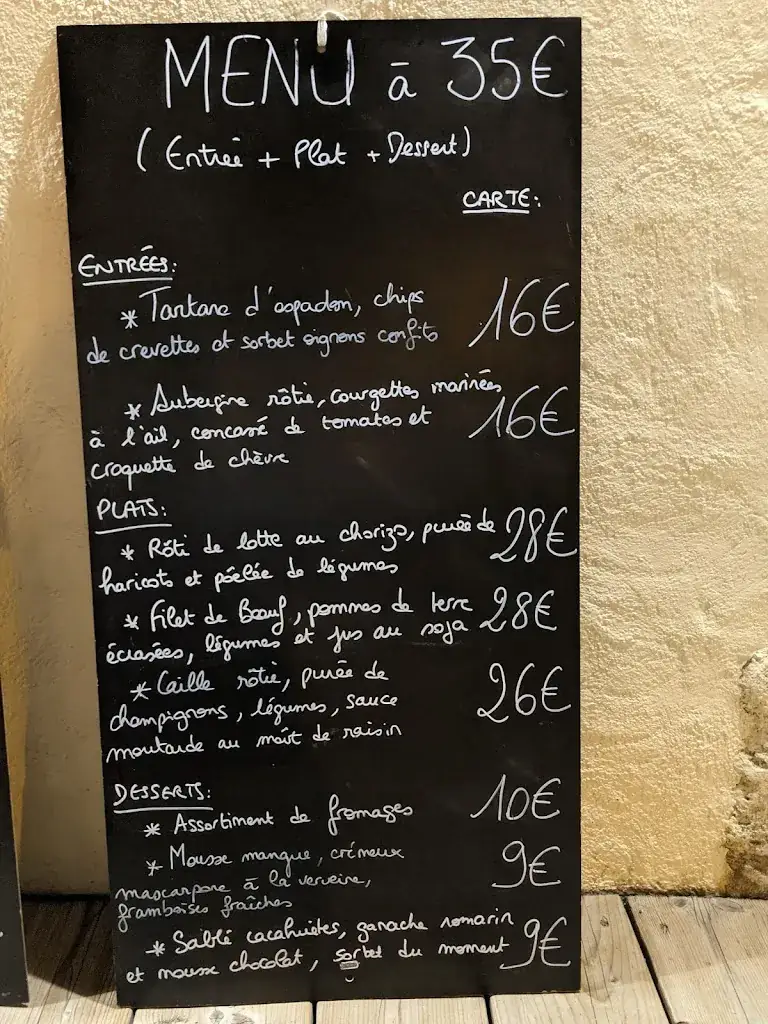 MENU à 35€
(Entrée + Plat + Dessert)
CARTE:
ENTRÉES:
* Tartare d'espadon, chips 16€
de crevettes et sorbet oignons confits
* Aubergine rôtie, courgettes marinées 16€
à l'ail, concassé de tomates et
croquette de chèvre
PLATS:
* Rôti de lotte au chorizo, purée de 28€
haricots et poêlée de légumes
* Filet de Bœuf, pommes de terre 28€
écrasées, légumes et jus au soja
* Caille rôtie, purée de 26€
champignons, légumes, sauce
moutarde au moût de raisin
DESSERTS:
* Assortiment de fromages 10€
* Mousse mangue, crémeux 9€
mascarpone à la verveine,
framboises fraîches
* Sablé cacahuètes, ganache romarin 9€
et mousse chocolat, sorbet du moment